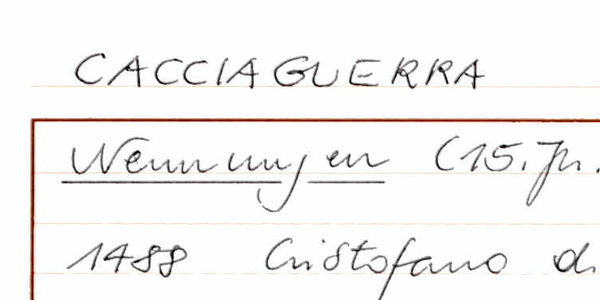 CACCIAGUERRA
Nennungen (15. Jh.
1488 Cristofano di